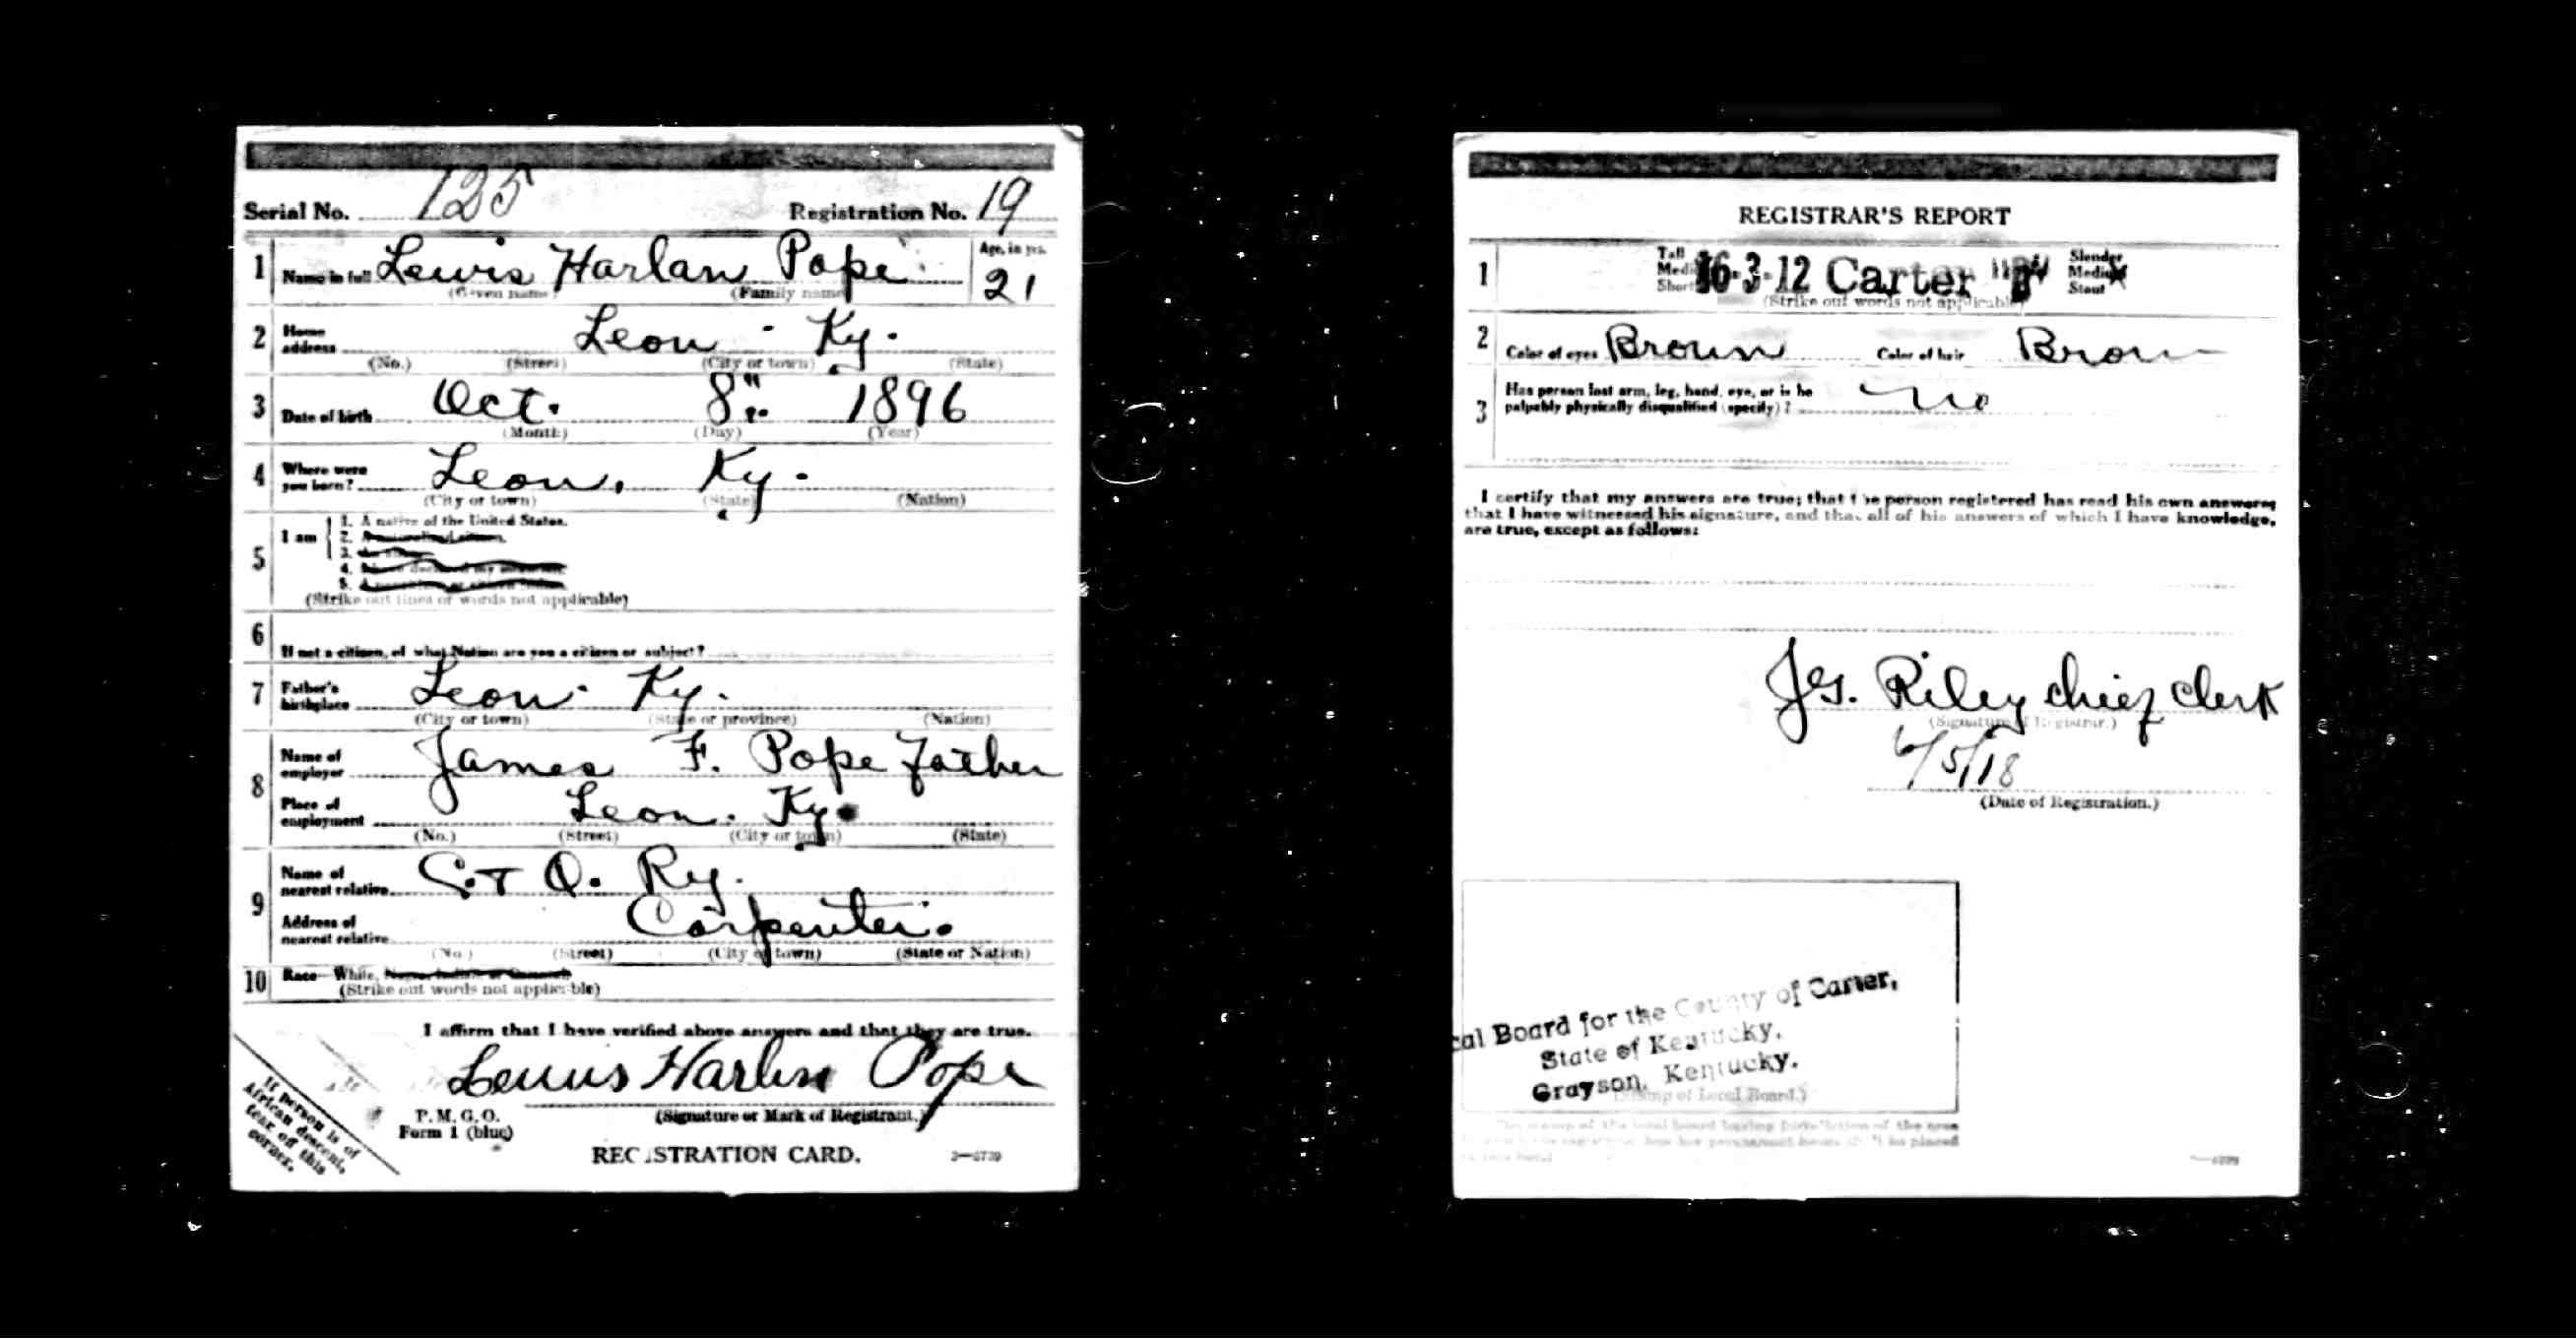 Serial No. 125 Registration No. 19
1 Name in full Lewis Harlan Pope Age, in yrs. 21
(Given name) (Family name)
2 Home address Leon - Ky.
(No.) (Street) (City or town) (State)
3 Date of birth Oct. 8" 1896
(Month) (Day) (Year)
4 Where were you born? Leon, Ky.
(City or town) (State) (Nation)
5 I am 1. A native of the United States.
2.
3.
4.
5.
(Strike out lines or words not applicable)
6 If not a citizen, of what Nation are you a citizen or subject?
7 Father's birthplace Leon - Ky.
(City or town) (State or province) (Nation)
8 Name of employer James F. Pope Father
Place of employment Leon. Ky.
(No.) (Street) (City or town) (State)
9 Name of nearest relative C. + O. Ry.
Address of nearest relative Carpenter.
(No.) (Street) (City or town) (State or Nation)
10 Race—White,
(Strike out words not applicable)
I affirm that I have verified above answers and that they are true.
Lewis Harlan Pope
(Signature or Mark of Registrant.)
P. M. G. O.
Form 1 (blue)
REGISTRATION CARD.
If person is of
African descent,
tear off this
corner.
REGISTRAR'S REPORT
1 Tall Medi Short 16-3-12 Carter Slender Medium Stout
(Strike out words not applicable)
2 Color of eyes Brown Color of hair Brown
3 Has person lost arm, leg, hand, eye, or is he
palpably physically disqualified (specify)? no
I certify that my answers are true; that the person registered has read his own answers;
that I have witnessed his signature, and that all of his answers of which I have knowledge,
are true, except as follows:
Jas. Riley chief clerk
(Signature of Registrar.)
6/5/18
(Date of Registration.)
cal Board for the County of Carter,
State of Kentucky,
Grayson, Kentucky.
(Stamp of Local Board.)